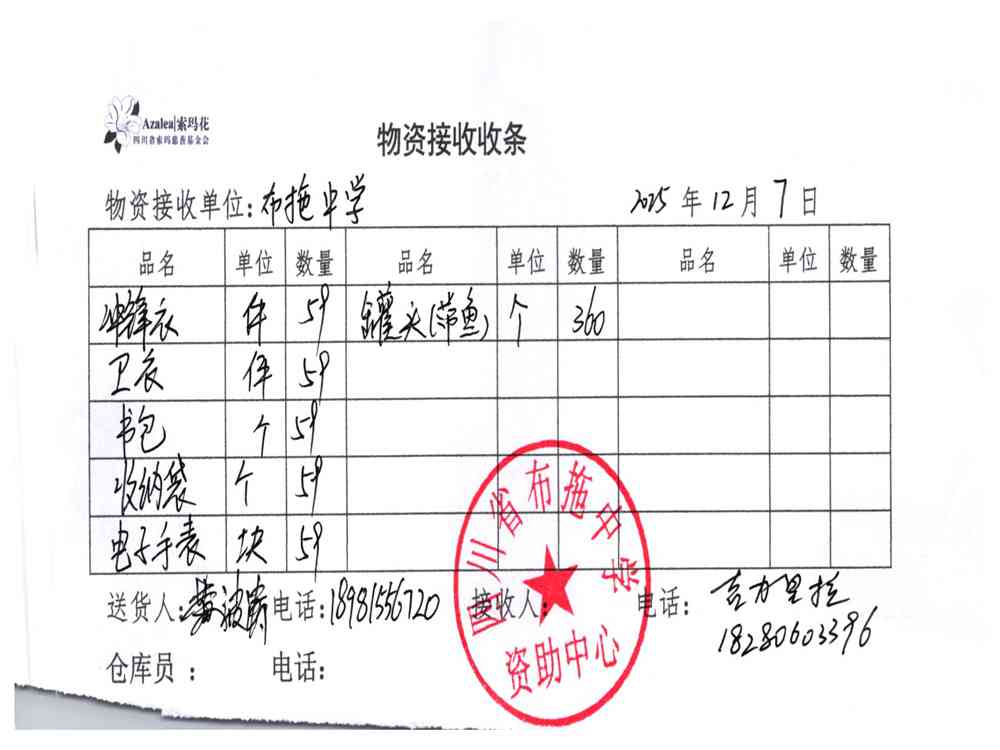 Azalea|索玛花
四川省索玛慈善基金会
物资接收收条
物资接收单位:布拖中学 2025年12月7日
品名 单位 数量 品名 单位 数量 品名 单位 数量
冲锋衣 件 59 罐头(带鱼) 个 360
卫衣 件 59
书包 个 59
收纳袋 个 59
电子手表 块 59
送货人: 电话:18981556720 接收人: 电话:吉力里拉
18280603396
仓库员: 电话:
四川省布拖中学
资助中心